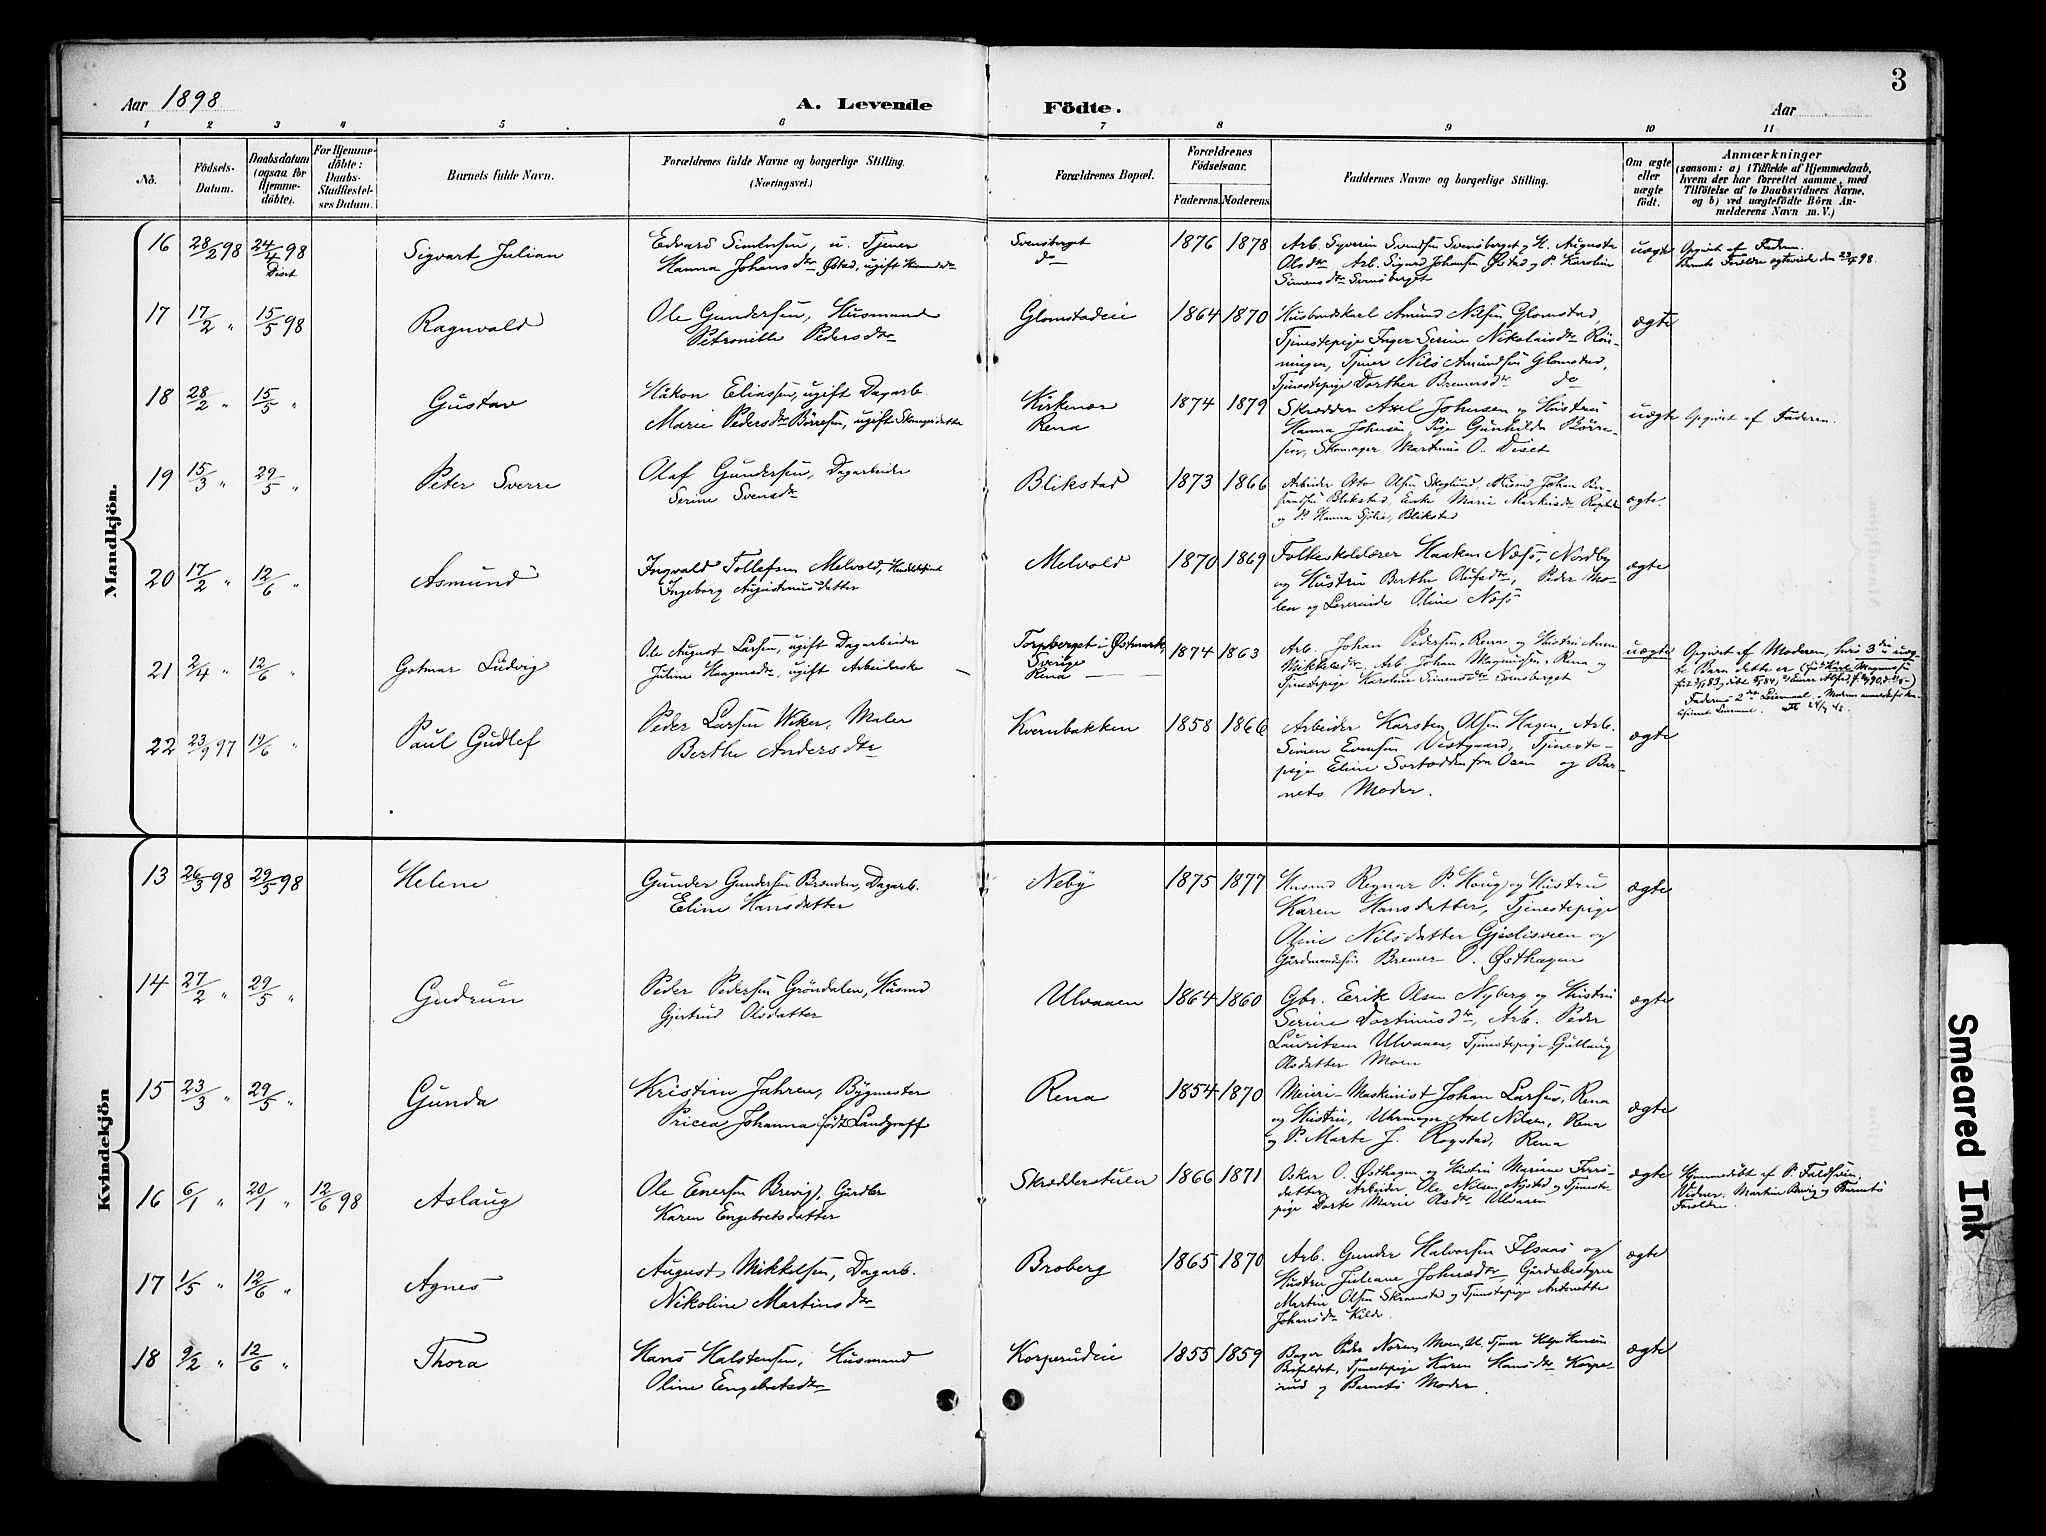 3
Aar 1898
A. Levende
Födte.
Aar
1 2 3 4 5 6 7 8 9 10 11
No.
Födsels-Datum.
Daabsdatum (ogsaa for Hjemme-döbte).
For Hjemme-döbte: Daabs-Stadfæstel-ses Datum.
Barnets fulde Navn.
Forældrenes fulde Navne og borgerlige Stilling.
(Næringsvei.)
Forældrenes Bopæl.
Forældrenes Födselsaar.
Faderens. Moderens.
Faddernes Navne og borgerlige Stilling.
Om ægte eller uægte födt.
Anmærkninger
(saasom: a) i Tilfælde af Hjemmedaab,
hvem der har forrettet samme, med
Tilföielse af to Daabsvidners Navne,
og b) ved uægtefödte Börn An-
melderens Navn m. V.)
Mandkjön.
16 28/2 98 24/4 98 Diset Sigvart Julian
Edvard Simensen, u. Tjener
Hanna Johansdtr Østad, ugift
Svensberget
do
1876 1878
Arb. Syverin Svendsen Svensberget og H. Augusta
Olsdtr Arb. Sigurd Johansen Østad og P. Karoline
Simensdtr Svensberget
uægte
Opgivet af Faderen.
Barnets Forældre ægteviede den 23/7 98.
17 17/2 " 15/5 98 Ragnvald
Ole Gundersen, Husmand
Petronille Pedersdtr
Glomstadeie
1864 1870
Husbondskarl Amund Nilsen Glomstad,
Tjenestepige Inger Serine Nikolaisdtr Røn-
ningen, Tjener Nils Amundsen Glomstad,
Tjenestepige Dorthea Bremersdtr do
ægte
18 28/2 " 15/5 " Gustav
Håkon Eliassen, ugift Dagarb.
Marie Pedersdtr Børresen, ugift Skomagerdatter
Kirkenær
Rena
1874 1879
Skrædder Axel Johnsen og Hustru
Hanna Johnsen, Pige Gunhilda Børre-
sen, Skomager Martinus O. Diset
uægte
Opgivet af Faderen.
19 15/3 " 29/5 " Peter Sverre
Olaf Gundersen, Dagarbeider
Serine Svensdtr
Blikstad
1873 1866
Arbeider Otto Olsen Skoglund, Husmd Johan Ber-
Blikstad, Enke Marie Markusdtr
og P. Hanna Sjølie, Blikstad
ægte.
20 17/2 " 12/6 " Asmund
Ingvald Tollefsen Melvold,
Ingeborg Augustinusdatter
Melvold
1870 1869
Folkeskolelærer Haaken Næss, Nordby
og Hustru Berthe Olufsdtr, Peder Mo-
len og Lærerinde Oline Næss
ægte
21 2/4 " 12/6 " Gotmar Ludvig
Ole August Larsen, ugift Dagarbeider
Juline Haagensdtr, ugift Arbeiderske
Torpberget i Østmark,
Sverige
Rena
1874 1863
Arb. Johan Pedersen, Rena og Hustru Anne
Mikkelsdtr, Arb. Johan Magnussen, Rena og
Tjenestepige Karoline Simensdtr Svensberget
uægte
Opgivet af Moderen, hvis 3die uæg-
te Barn dette er
22 23/9 97 19/6 " Paul Gudlef
Peder Larsen Weker, Maler
Berthe Andersdtr
Kvernbakken
1858 1866
Arbeider Karsten Olsen Hagen, Arb.
Simen Evensen Vestgaard, Tjeneste-
pige Eline fra Osen og Bar-
nets Moder.
ægte
Kvindekjön
13 26/3 98 29/5 98 Helene
Gunder Gundersen Brænden, Dagarb.
Eline Hansdatter
Neby
1875 1877
Husmd Regnar P. Houg og Hustru
Karen Hansdatter, Tjenestepige
Oline Nilsdatter Gjeslisveen og
Gårdmandssøn Bremer O. Østhagen
ægte
14 27/2 " 29/5 " Gudrun
Peder Pedersen Grøndalen, Husmd
Gjertrud Olsdatter
Ulvaaen
1864 1860
Gbr. Erik Olsen Nyberg og Hustru
Serine Dortinusdtr, Arb. Peder
Lauritsen Ulvaaen, Tjenestepige Gullaug
Olsdatter Moen
ægte
15 23/3 " 29/5 " Gunda
Kristian Jahren, Bygmester
Pricea Johanna født Landgraff
Rena
1854 1870
Meieri-Maskinist Johan Larsen, Rena
og Hustru, Uhrmager Axel Nilsen, Rena
og P. Marte J. Rogstad, Rena
ægte
16 6/1 " 20/1 " 12/6 98 Aslaug
Ole Enersen Brevig, Gårdbr
Karen Engebretsdatter
Skredderstuen
1866 1871
Oskar O. Østhagen og Hustru Mariane
datter, Arbeider Ole Nilsen, Nystad og Tjeneste-
pige Dorte Marie Olsdtr Ulvaaen
ægte
Hjemmedøbt af P.
Vidner: Martin Brevig og Barnets
Forældre.
17 1/5 " 12/6 " Agnes
August Mikkelsen, Dagarb.
Nikoline Martinsdtr
Broberg
1865 1870
Arb. Gunder Halvorsen Ilsaas og
Hustru Juliane Johnsdtr, Gårdsbestyrer
Martin Olsen Skramstad og Tjenestepige Antonette
Johansdtr Kilde.
ægte
18 9/2 " 12/6 " Thora
Hans Halstensen, Husmand
Oline Engebretsdtr
Korperudeie
1855 1859
Bager Peder Noren, Moen, U. Tjener Helge Hansen
Tjenestepige Karen Hansdtr Korpe-
rud og Barnets Moder.
ægte
Smeared Ink